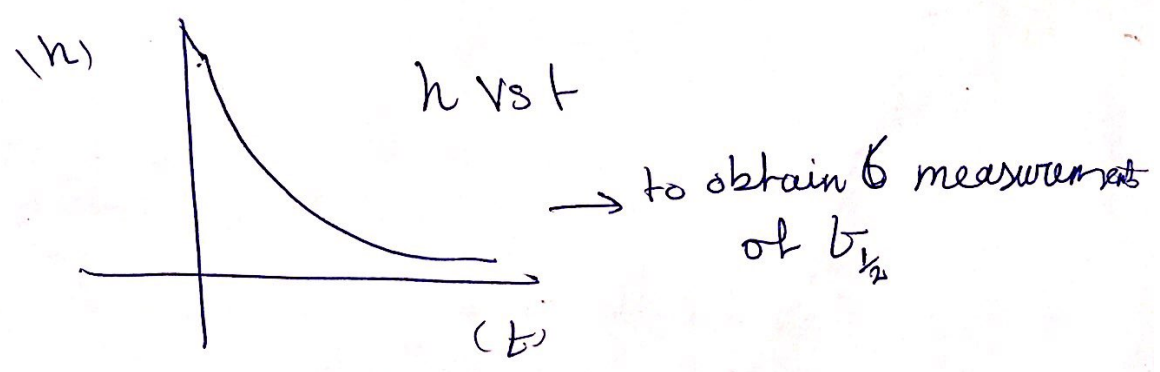 (h)
h vs t
→ to obtain 6 measurements
of t½
(t)